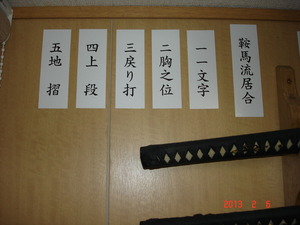 鞍馬流居合
一一文字
二胸之位
三戻り打
四上段
五地摺
2013 2 6